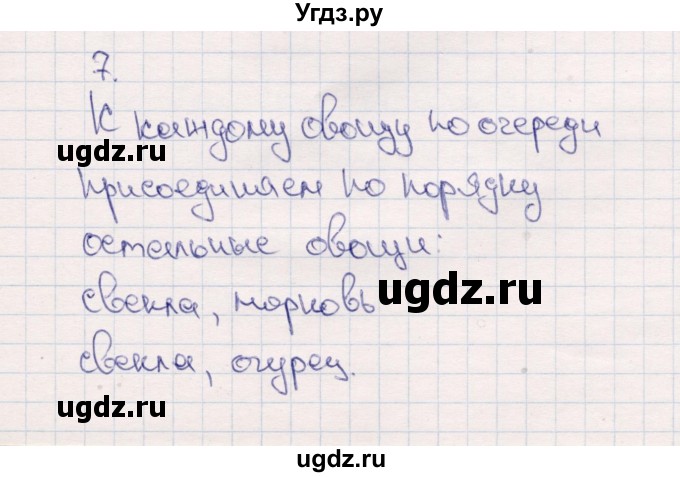 Угдз.ру
7.
К каждому овощу по очереди
ugdz.ru
присоединяем по порядку
остальные овощи:
свекла, морковь
ugdz.ru
свекла, огурец.
ugdz.ru
ugdz.ru